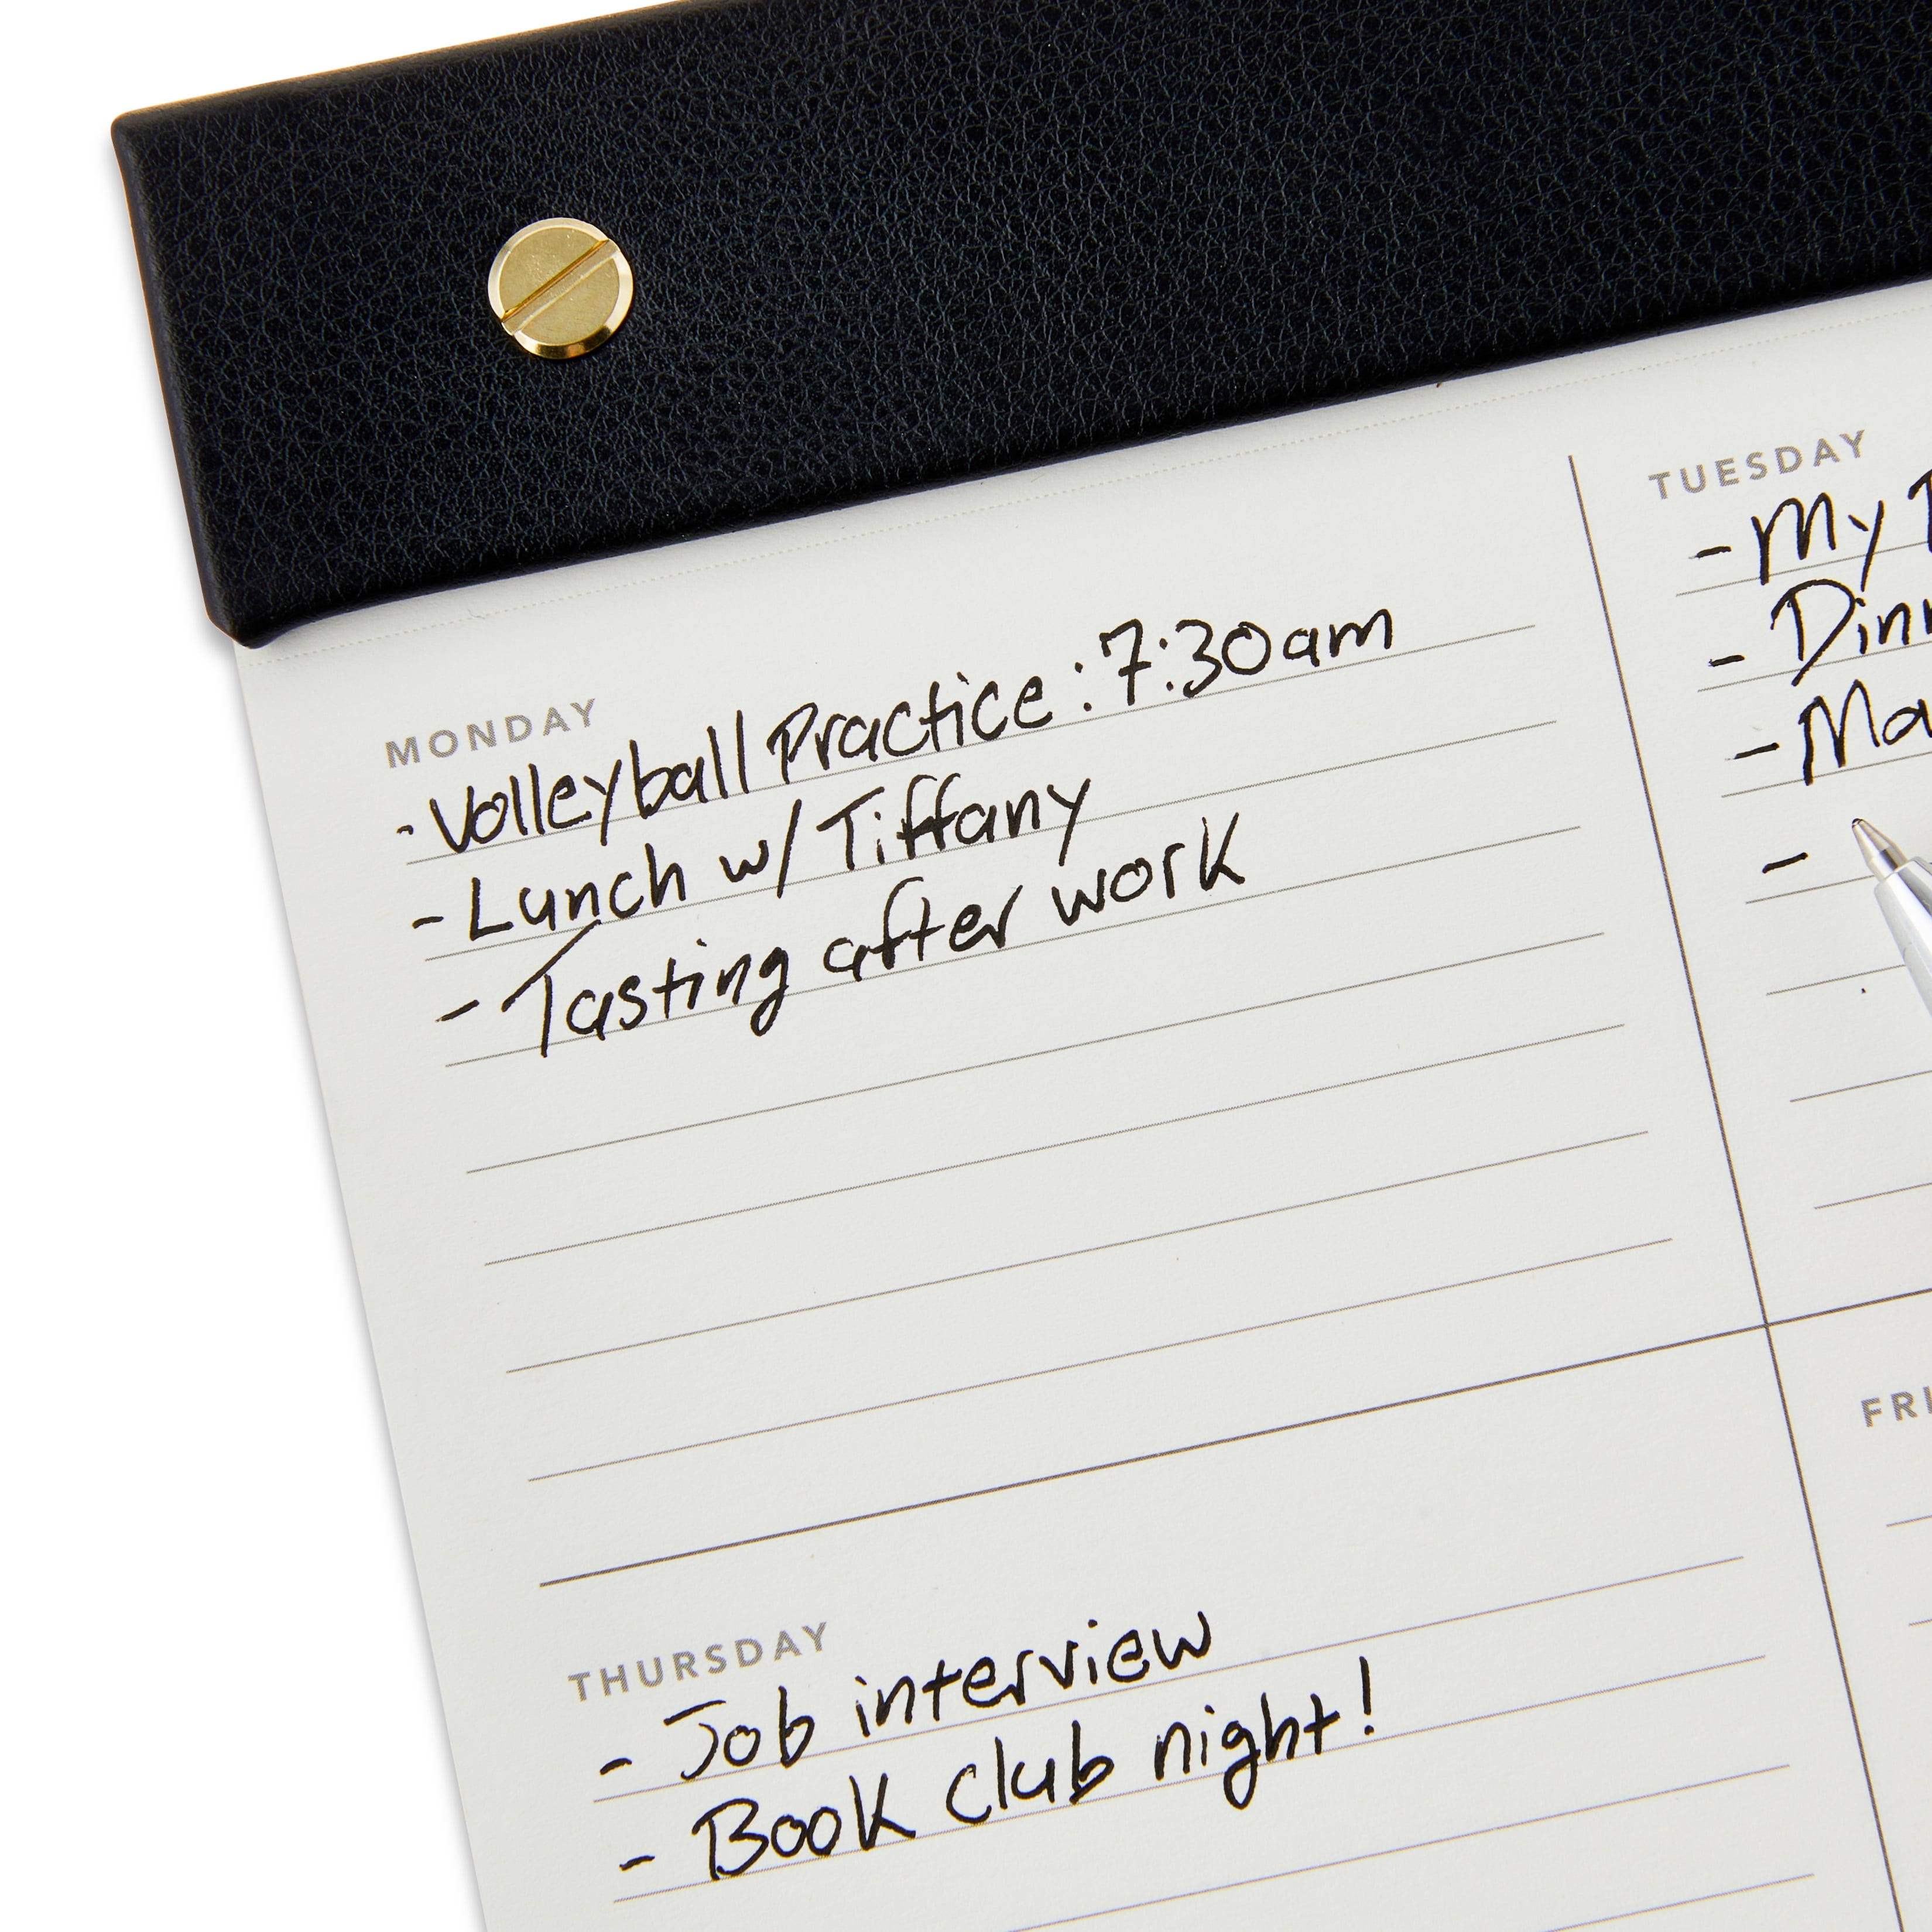 MONDAY
- Volleyball Practice: 7:30am
- Lunch w/ Tiffany
- Tasting after work
TUESDAY
- My
-
-
-
THURSDAY
- Job interview
- Book club night!